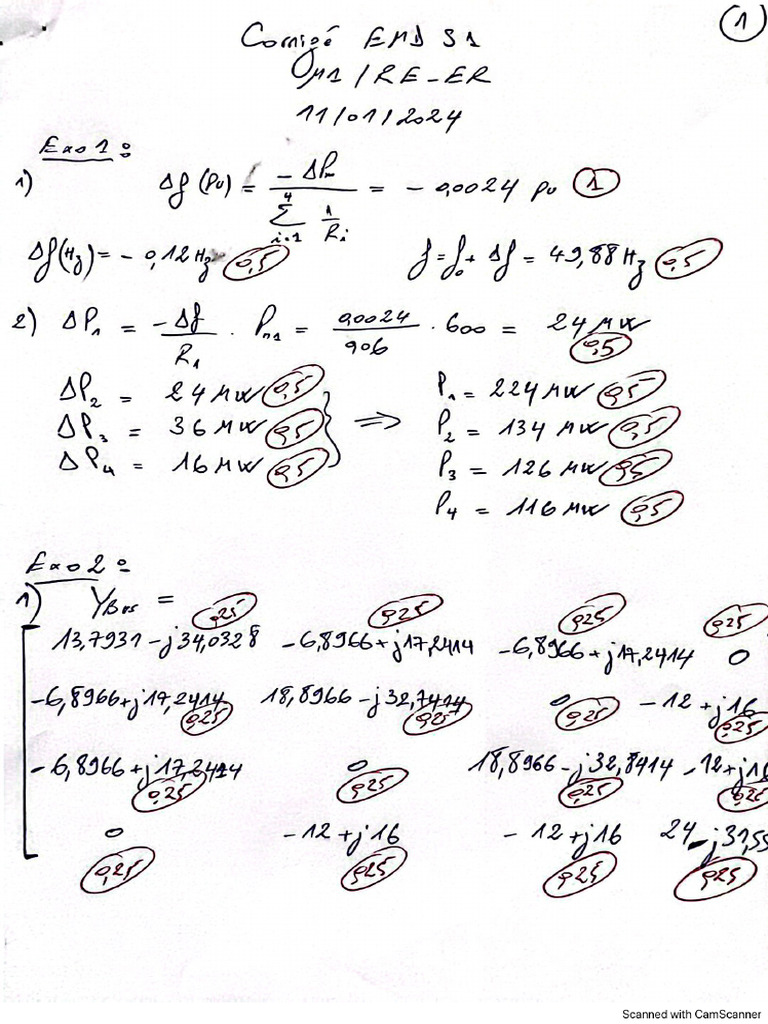 1
Corrigé EMD S1
M1 / RE - ER
11/01/2024
Exo 1 :
1) Δf (pu) = -ΔPm / (Σ_{i=1}^{4} 1/R_i) = - 0,0024 pu (1)
Δf(Hz) = - 0,12 Hz (0,5) f = f₀ + Δf = 49,88 Hz (0,5)
2) ΔP₁ = -Δf/R₁ · Pn1 = 0,0024/0,06 · 600 = 24 MW (0,5)
ΔP₂ = 24 MW (0,5) P₁ = 224 MW (0,5)
ΔP₃ = 36 MW (0,5) ⟹ P₂ = 134 MW (0,5)
ΔP₄ = 16 MW (0,5) P₃ = 126 MW (0,5)
P₄ = 116 MW (0,5)
Exo 2 :
1) YBus =
0,25 0,25 0,25 0,25
13,7931 - j34,0328 -6,8966 + j17,2414 -6,8966 + j17,2414 0
-6,8966 + j17,2414 18,8966 - j32,7414 0 -12 + j16
0,25 0,25 0,25 0,25
-6,8966 + j17,2414 0 18,8966 - j32,8414 -12 + j16
0,25 0,25 0,25 0,25
0 -12 + j16 -12 + j16 24 - j31,55
0,25 0,25 0,25 0,25
Scanned with CamScanner